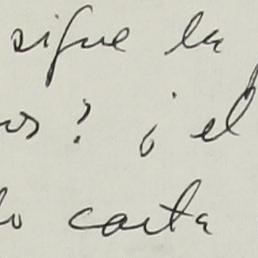 sigue la
os? ¿ el
lo carta